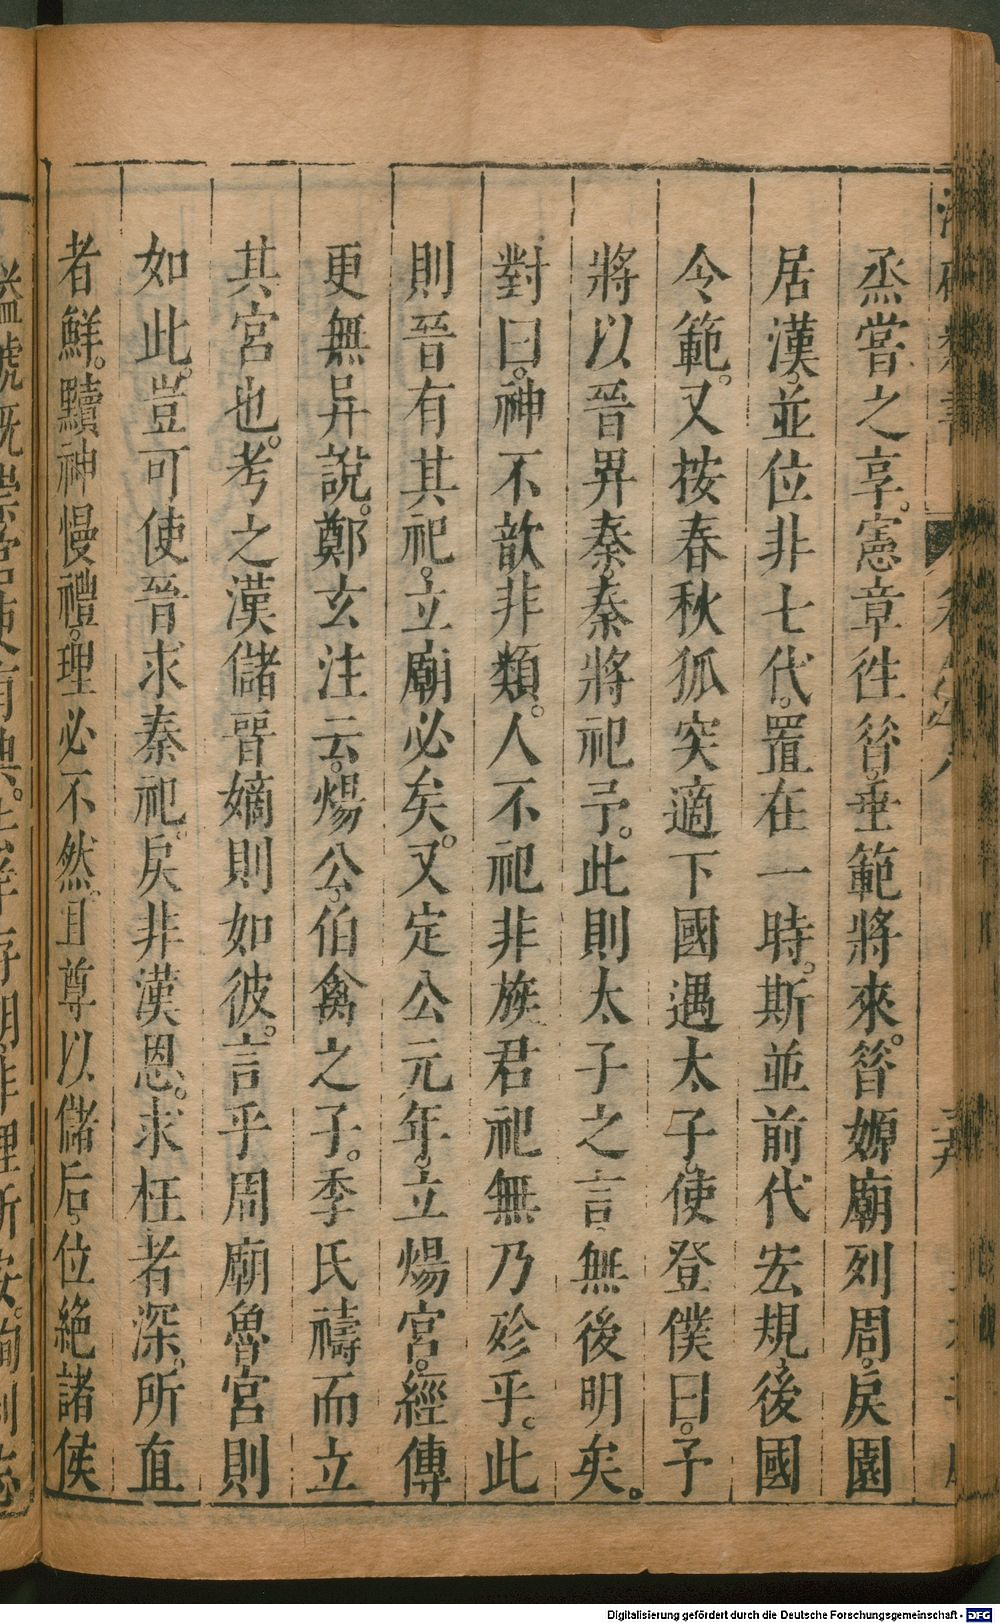 烝嘗之享。憲章徃昝。垂範將來。昝嫄廟列周。戾園
居漢。並位非七代。置在一時。斯並前代宏規。後國
令範。又按春秋狐突適下國遇太子。使登僕曰。予
將以晉畀秦。秦將祀予。此則太子之言。無後明矣。
對曰。神不歆非類。人不祀非族。君祀無乃殄乎。此
則晉有其祀。立廟必矣。又定公元年。立煬宮。經傳
更無异說。鄭玄注云。煬公。伯禽之子。季氏禱而立
其宮也。考之漢儲晉嫡則如彼。言乎周廟魯宮則
如此。豈可使晉求秦祀。戾非漢恩。求枉者深。所直
者鮮。黷神慢禮。理必不然。且尊以儲后。位絕諸侯
Digitalisierung gefördert durch die Deutsche Forschungsgemeinschaft - DFG